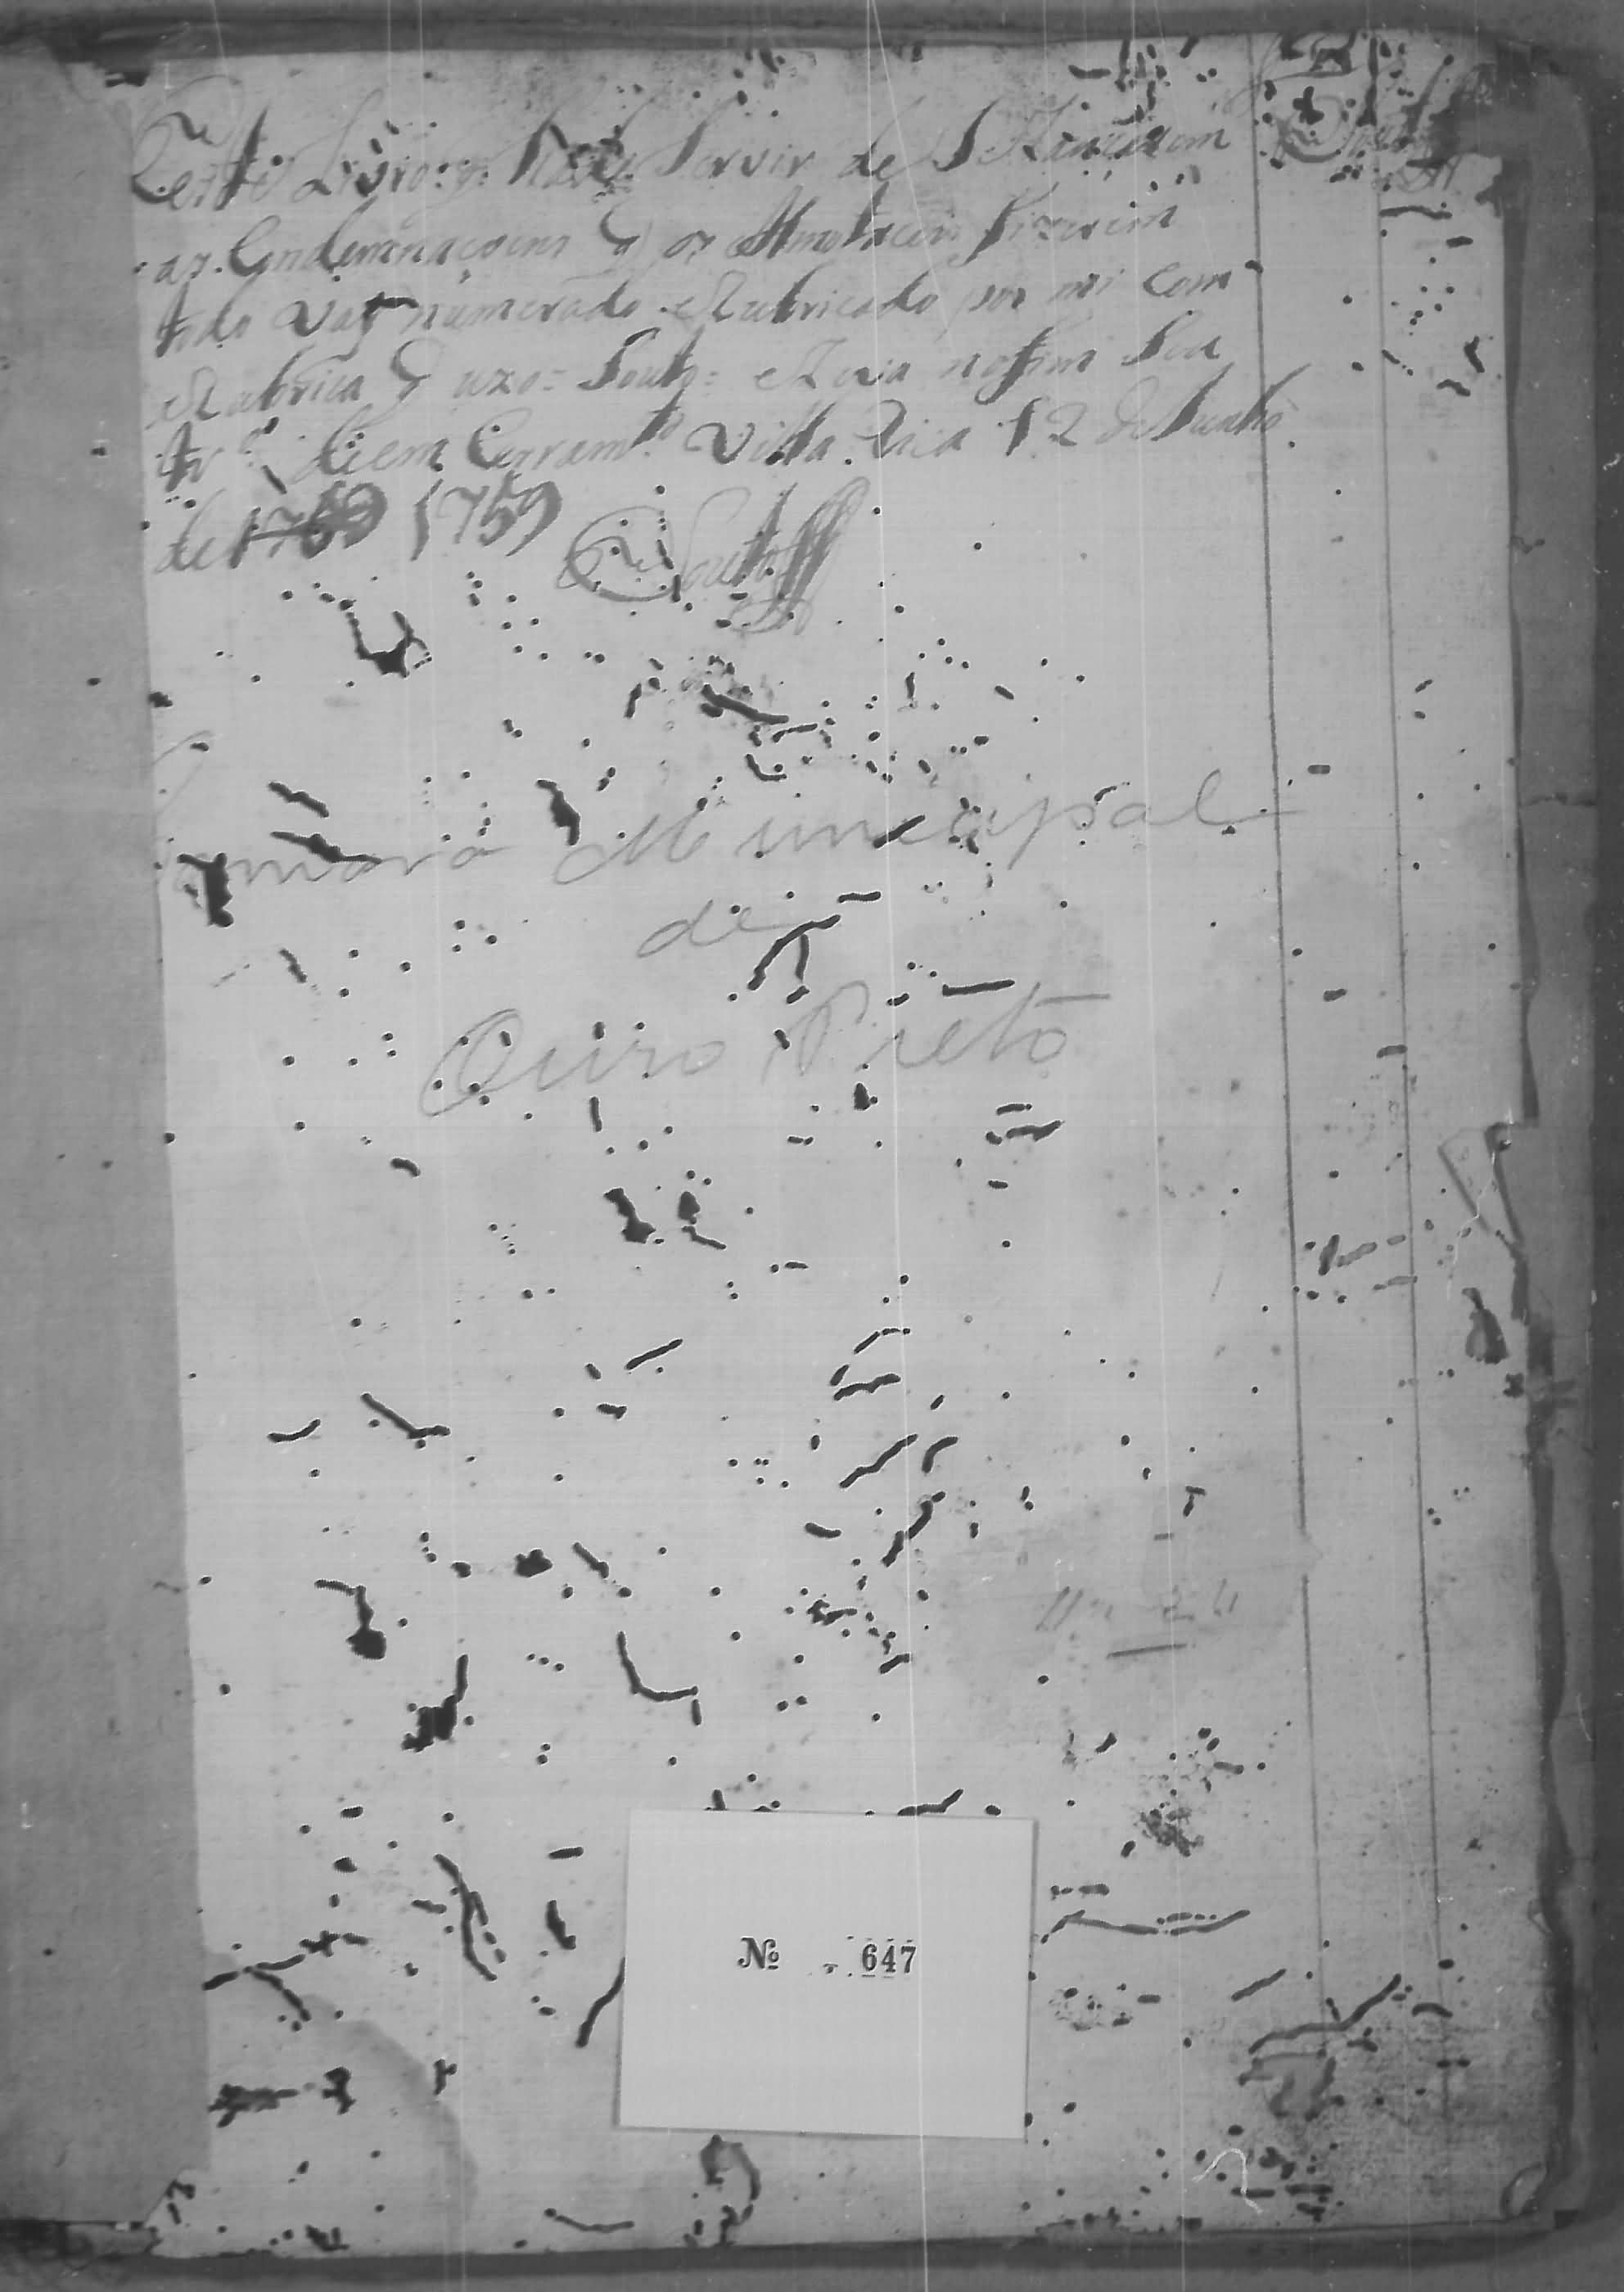 Este Livro q. hade Servir de
as Condemnaçoens q os Almotaceis fizerem
todo vay numerado e Rubricado por mi com
a Rubrica q uzo = Souto = e Leva no fim Seu
tr.º de em Cerram.to Villa Rica 12 de Junho
de 1759
Souto
Camara Municipal
de
Ouro Preto
Nº 647